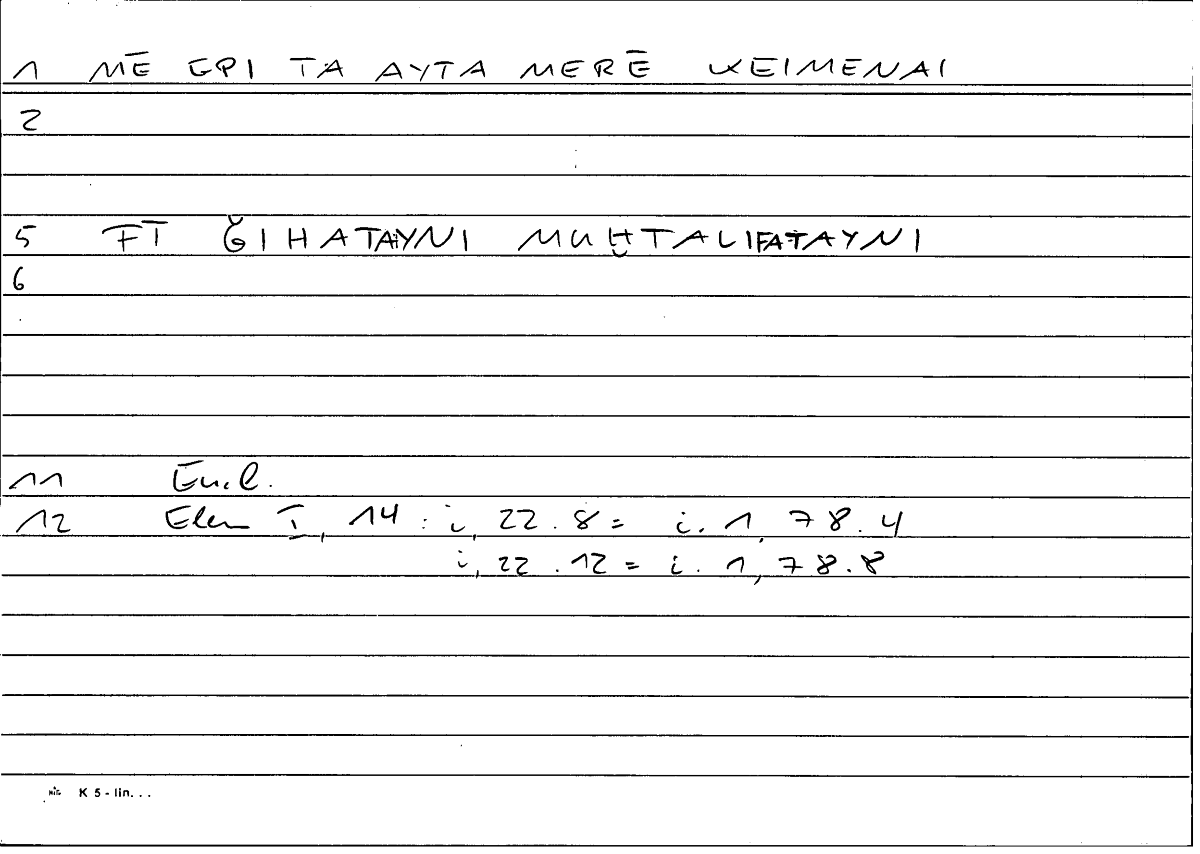 1 MĒ EPI TA AYTA MERĒ KEIMENAI
2
5 FĪ ǦIHATAYNI MUḪTALIFATAYNI
6
11 Eucl.
12 Elem I, 14 : i, 22 . 8 = i. 1, 78. 4
i, 22 . 12 = i. 1, 78. 8
K 5 - lin. . .